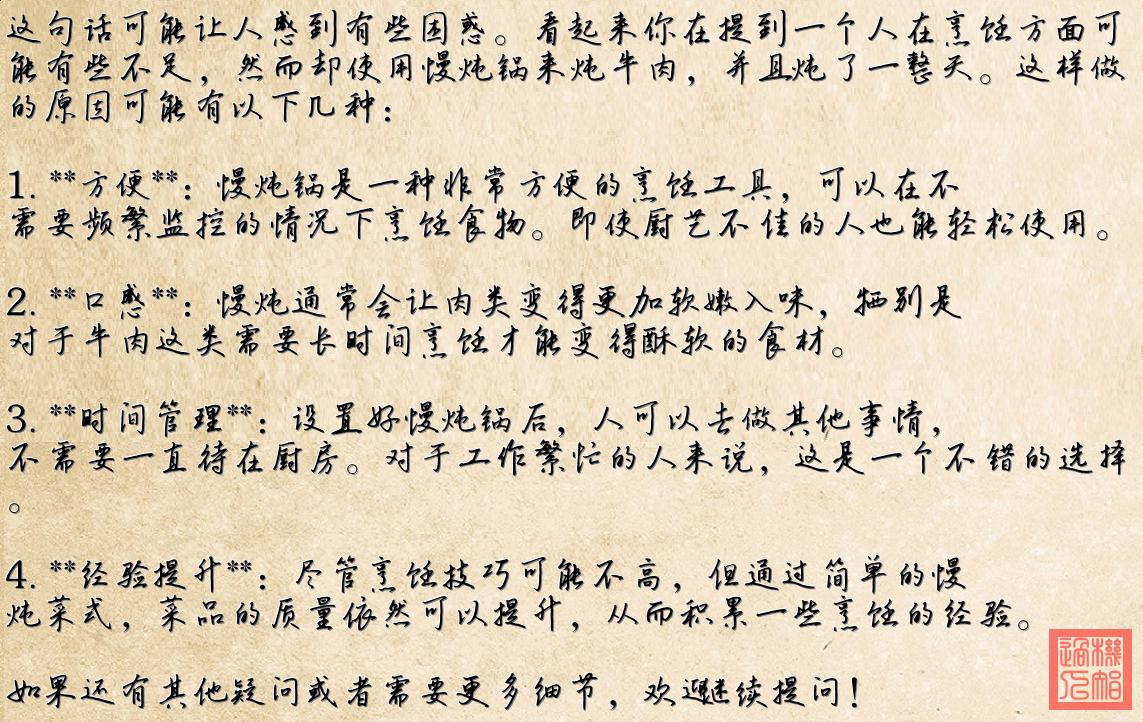 这句话可能让人感到有些困惑。看起来你在提到一个人在烹饪方面可
能有些不足，然而却使用慢炖锅来炖牛肉，并且炖了一整天。这样做
的原因可能有以下几种：
1. **方便**：慢炖锅是一种非常方便的烹饪工具，可以在不
需要频繁监控的情况下烹饪食物。即使厨艺不佳的人也能轻松使用。
2. **口感**：慢炖通常会让肉类变得更加软嫩入味，牺别是
对于牛肉这类需要长时间烹饪才能变得酥软的食材。
3. **时间管理**：设置好慢炖锅后，人可以去做其他事情，
不需要一直待在厨房。对于工作繁忙的人来说，这是一个不错的选择
。
4. **经验提升**：尽管烹饪技巧可能不高，但通过简单的慢
炖菜式，菜品的质量依然可以提升，从而积累一些烹饪的经验。
如果还有其他疑问或者需要更多细节，欢迎继续提问！